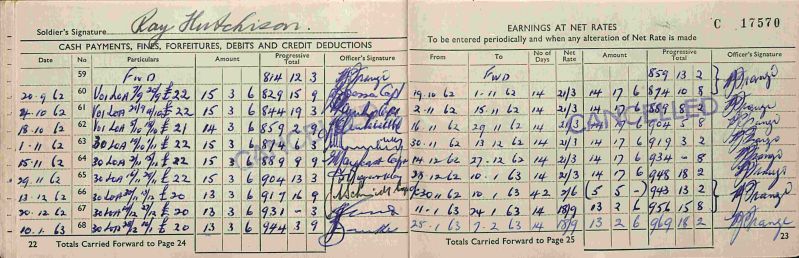 Soldier's Signature Ray Hutchison.
CASH PAYMENTS, FINES, FORFEITURES, DEBITS AND CREDIT DEDUCTIONS
Date No Particulars Amount Progressive Total Officer's Signature
59 FWD 814 12 3
20-9 62 60 £22 15 3 6 829 15 9
4-10 62 61 £22 15 3 6 844 19 3
18-10 62 62 £21 14 3 6 859 2 9
1-11 62 63 30 LOA £22 15 3 6 874 6 3
15-11 62 64 30 LOA £22 15 3 6 889 9 9
29 11 62 65 30 LOA £22 15 3 6 904 13 3
13-12 62 66 30 LOA £20 13 3 6 917 16 9
20-12 62 67 30 LOA £20 13 3 6 931 - 3
10.1.63 68 30 LOA £20 13 3 6 944 3 9
22 Totals Carried Forward to Page 24
CANCELLED
EARNINGS AT NET RATES C 17570
To be entered periodically and when any alteration of Net Rate is made
From To No of Days Net Rate Amount Progressive Total Officer's Signature
FWD 859 13 2
19.10 62 1-11 62 14 21/3 14 17 6 874 10 8
2-11 62 15-11 62 14 21/3 14 17 6 889 8 2
16-11 62 29 11 62 14 17 6 904 5 8
30-11 62 13 12 62 14 21/3 14 17 6 919 3 2
14-12 62 27-12 62 14 21/3 14 17 6 934 - 8
28-12 62 10.1.63 14 21/3 14 17 6 948 18 2
30-11 62 10.1.63 42 2/6 (5 5 -) 943 13 2
11-1.63 24.1.63 14 18/9 13 2 6 956 15 8
25-1.63 7-2 63 14 18/9 13 2 6 969 18 2
Totals Carried Forward to Page 25 23
CANCELLED